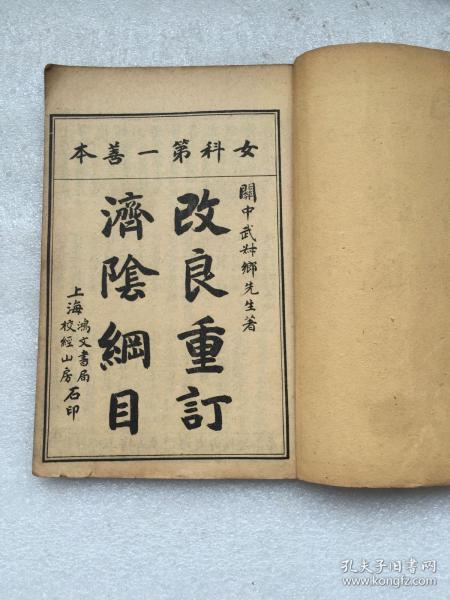 女科第一善本
關中武叔卿先生著
改良重訂
濟陰綱目
上海鴻文書局校經山房石印
孔夫子旧书网
www.kongfz.com